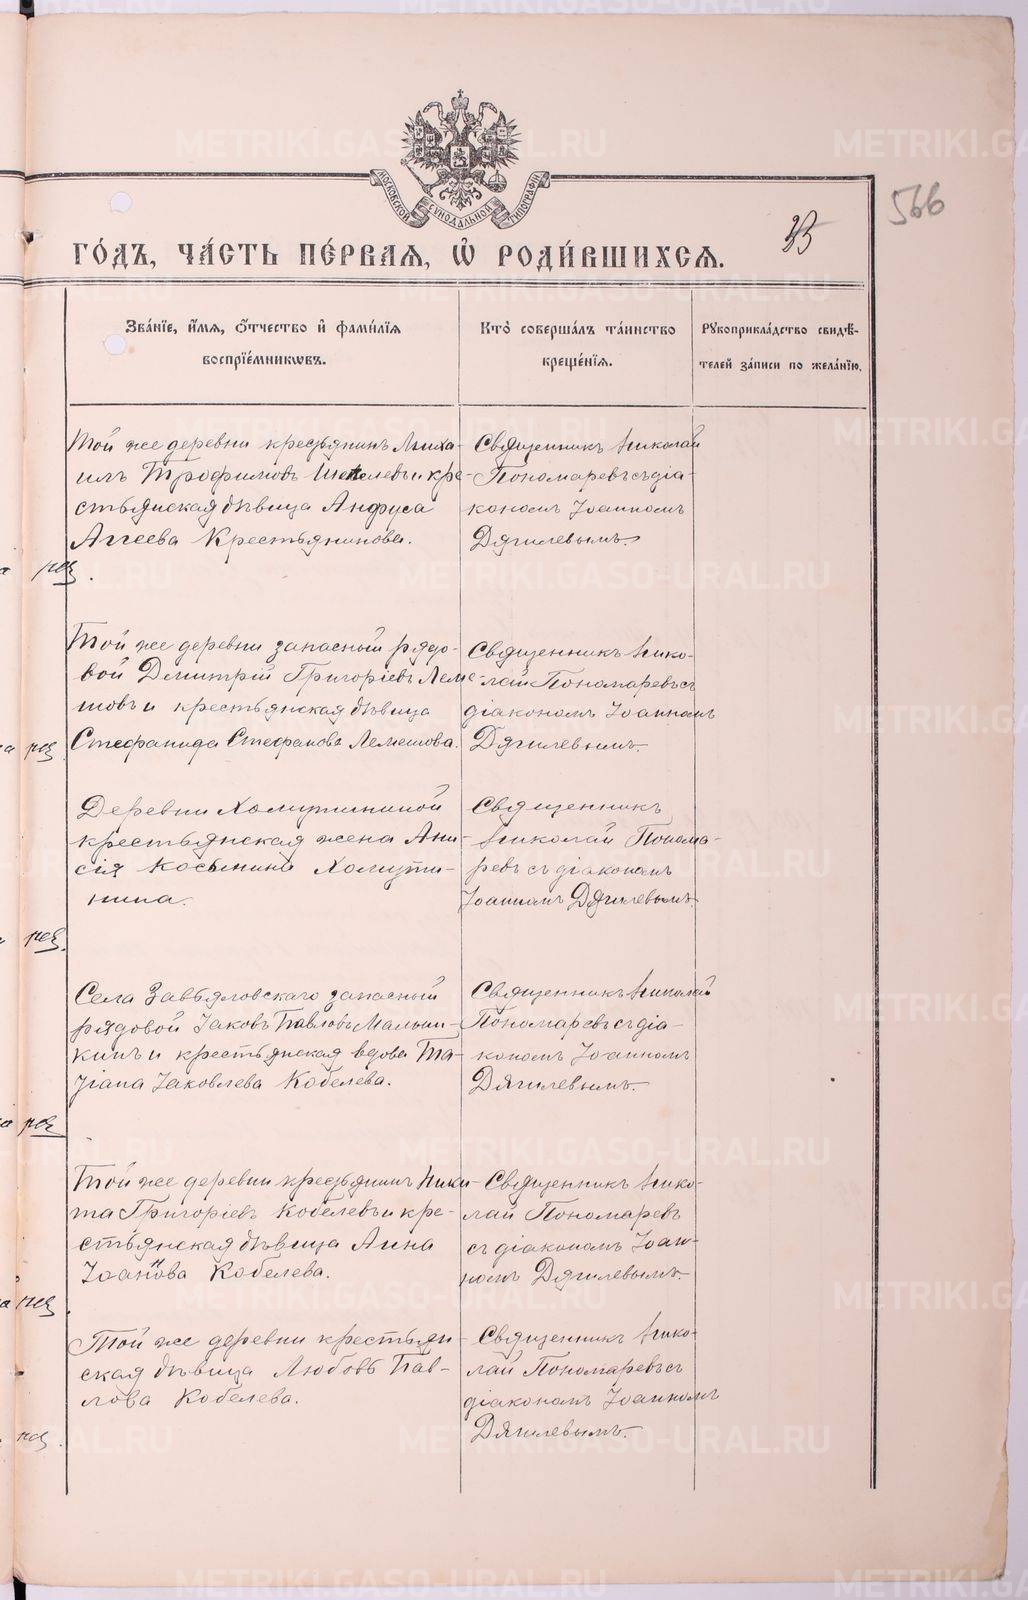 МОСКОВСКОЙ СѴНОДАЛЬНОЙ ТИПОГРАФІИ
566
33
ГО́ДЪ, ЧА́СТЬ ПЕ́РВАѦ, Ѡ҆ РОДИ́ВШИХСѦ.
Зва́нїе, и҆́мѧ, ѻ҆́тчество и҆ фами́лїѧ
воспрїе́мникѡвъ.
Кто̀ соверша́лъ та́инство
креще́нїѧ.
Рꙋкоприкла́дство свидѣ́-
телей за́писи по жела́нїю.
Той же деревни крестьянинъ Миха-
илъ Трофимовъ Шекелевъ и кре-
стьянская дѣвица Анфуса
Аггеева Крестьянинова.
Священникъ Николай
Пономаревъ съ діа-
кономъ Іоанномъ
Дягилевымъ.
Той же деревни запасный рядо-
вой Димитрій Григоріевъ Леме-
шовъ и крестьянская дѣвица
Стефанида Стефанова Лемешова.
Священникъ Нико-
лай Пономаревъ съ
діакономъ Іоанномъ
Дягилевымъ.
Деревни Холутининой
крестьянская жена Ани-
сія Косьмина Холути-
нина.
Священникъ
Николай Понома-
ревъ съ діакономъ
Іоанномъ Дягилевымъ.
Села Завьяловскаго запасный
рядовой Іаковъ Павловъ Малыш-
кинъ и крестьянская вдова Та-
тіана Іаковлева Кобелева.
Священникъ Николай
Пономаревъ съ діа-
кономъ Іоанномъ
Дягилевымъ.
Той же деревни крестьянинъ Ники-
та Григоріевъ Кобелевъ и кре-
стьянская дѣвица Анна
Іоаннова Кобелева.
Священникъ Нико-
лай Пономаревъ
съ діакономъ Іоан-
номъ Дягилевымъ.
Той же деревни крестьян-
ская дѣвица Любовь Пав-
лова Кобелева.
Священникъ Нико-
лай Пономаревъ съ
діакономъ Іоанномъ
Дягилевымъ.
METRIKI.GASO-URAL.RU